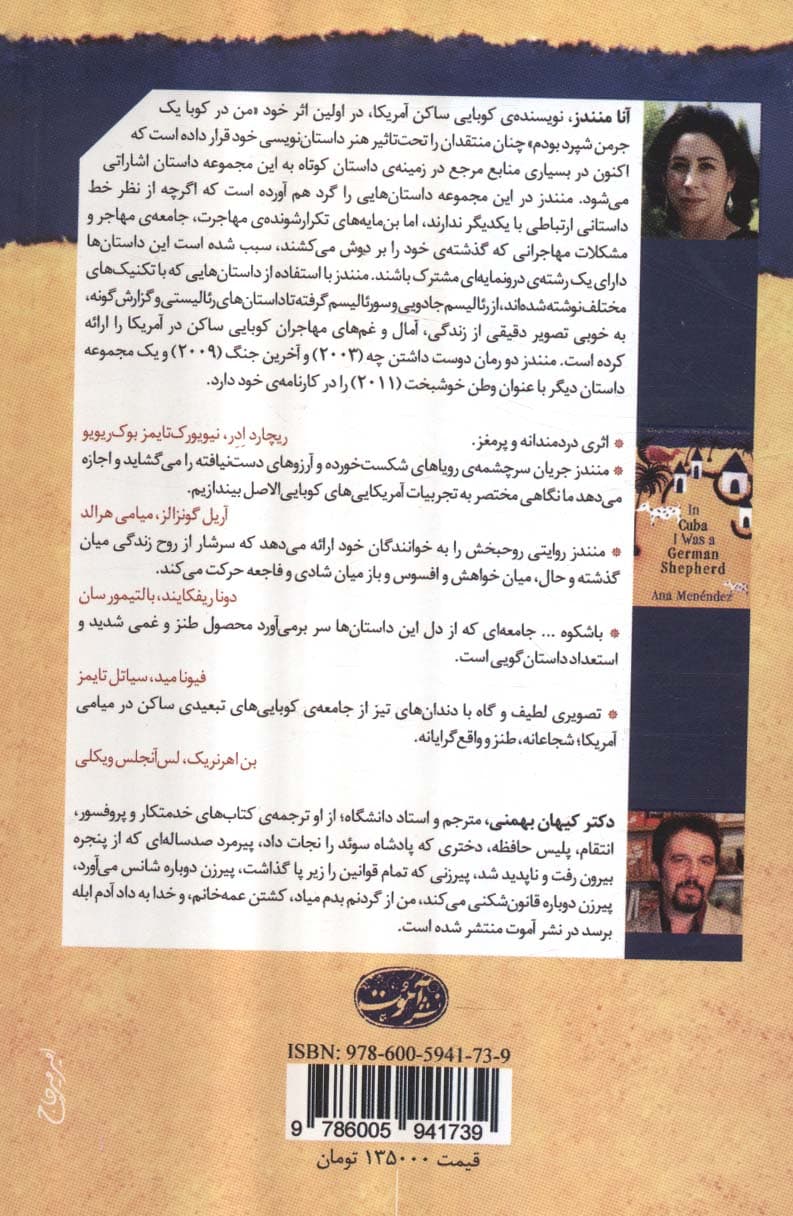 آنا منندز، نویسنده‌ی کوبایی ساکن آمریکا، در اولین اثر خود «من در کوبا یک
جرمن شپرد بودم» چنان منتقدان را تحت‌تاثیر هنر داستان‌نویسی خود قرار داده است که
اکنون در بسیاری منابع مرجع در زمینه‌ی داستان کوتاه به این مجموعه داستان اشاراتی
می‌شود. منندز در این مجموعه داستان‌هایی را گرد هم آورده است که اگرچه از نظر خط
داستانی ارتباطی با یکدیگر ندارند، اما بن‌مایه‌های تکرارشونده‌ی مهاجرت، جامعه‌ی مهاجر و
مشکلات مهاجرانی که گذشته‌ی خود را بر دوش می‌کشند، سبب شده است این داستان‌ها
دارای یک رشته‌ی درونمایه‌ای مشترک باشند. منندز با استفاده از داستان‌هایی که با تکنیک‌های
مختلف نوشته شده‌اند، از رئالیسم جادویی و سورئالیسم گرفته تا داستان‌های رئالیستی و گزارش گونه،
به خوبی تصویر دقیقی از زندگی، آمال و غم‌های مهاجران کوبایی ساکن در آمریکا را ارائه
کرده است. منندز دو رمان دوست داشتن چه (۲۰۰۳) و آخرین جنگ (۲۰۰۹) و یک مجموعه
داستان دیگر با عنوان وطن خوشبخت (۲۰۱۱) را در کارنامه‌ی خود دارد.
* اثری دردمندانه و پرمغز. ریچارد اِدِر، نیویورک‌تایمز بوک‌ریویو
* منندز جریان سرچشمه‌ی رویاهای شکست‌خورده و آرزوهای دست‌نیافته را می‌گشاید و اجازه
می‌دهد ما نگاهی مختصر به تجربیات آمریکایی‌های کوبایی‌الاصل بیندازیم.
آریل گونزالز، میامی هرالد
* منندز روایتی روحبخش را به خوانندگان خود ارائه می‌دهد که سرشار از روح زندگی میان
گذشته و حال، میان خواهش و افسوس و باز میان شادی و فاجعه حرکت می‌کند.
دونا ریفکایند، بالتیمور سان
* باشکوه ... جامعه‌ای که از دل این داستان‌ها سر برمی‌آورد محصول طنز و غمی شدید و
استعداد داستان‌گویی است.
فیونا مید، سیاتل تایمز
* تصویری لطیف و گاه با دندان‌های تیز از جامعه‌ی کوبایی‌های تبعیدی ساکن در میامی
آمریکا؛ شجاعانه، طنز و واقع گرایانه.
بن اهرنریک، لس‌آنجلس ویکلی
In
Cuba
I Was a
German
Shepherd
Ana Menéndez
دکتر کیهان بهمنی، مترجم و استاد دانشگاه؛ از او ترجمه‌ی کتاب‌های خدمتکار و پروفسور،
انتقام، پلیس حافظه، دختری که پادشاه سوئد را نجات داد، پیرمرد صدساله‌ای که از پنجره
بیرون رفت و ناپدید شد، پیرزنی که تمام قوانین را زیر پا گذاشت، پیرزن دوباره شانس می‌آورد،
پیرزن دوباره قانون‌شکنی می‌کند، من از گردنم بدم میاد، کشتن عمه‌خانم، و خدا به داد آدم ابله
برسد در نشر آموت منتشر شده است.
نشر آموت
ISBN: 978-600-5941-73-9
9 786005 941739
قیمت ۱۳۵۰۰۰ تومان